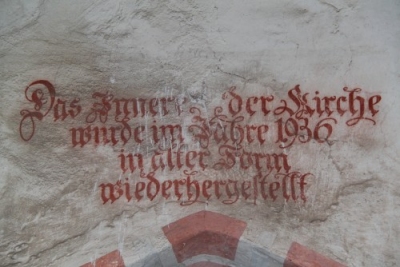 Das Innere der Kirche
wurde im Jahre 1936
in alter Form
wiederhergestellt